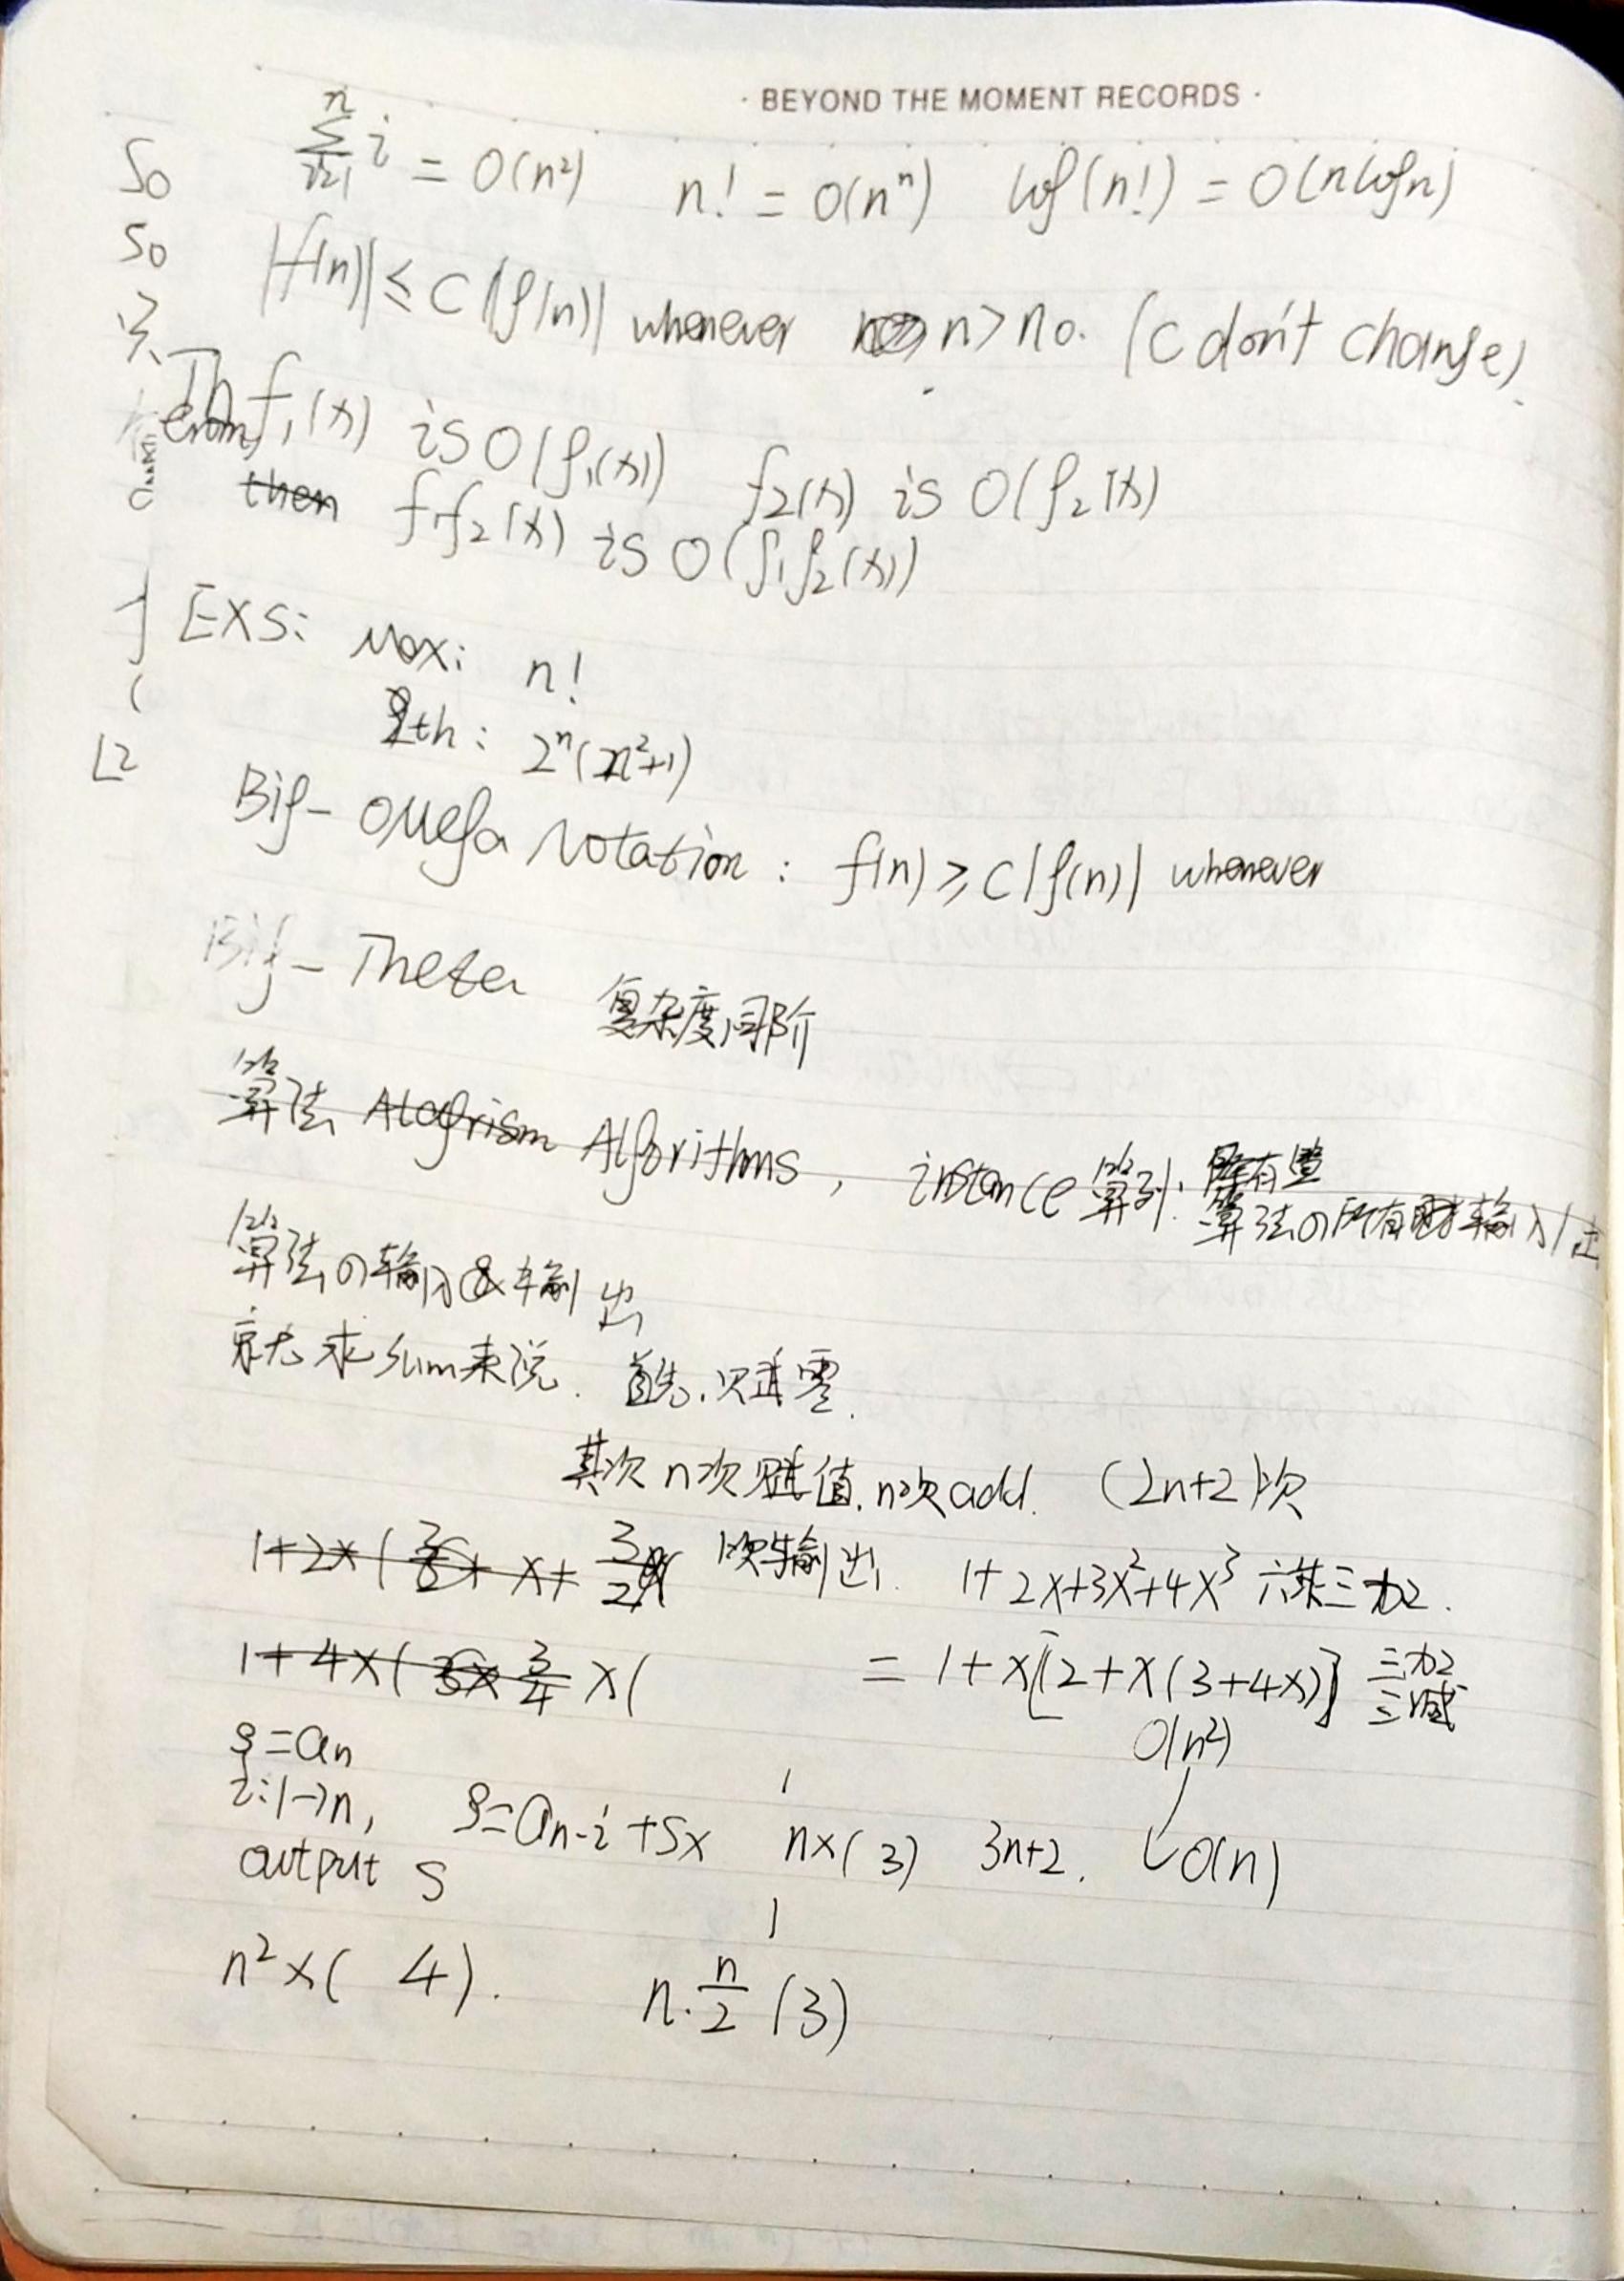 · BEYOND THE MOMENT RECORDS ·
So \sum_{i=1}^{n} i = O(n²) n! = O(nⁿ) log(n!) = O(nlogn)
So |f(n)| ≤ C|g(n)| whenever n > n₀. (C don't change)
f₁(x) is O(g₁(x)) f₂(x) is O(g₂(x)
then f₁f₂(x) is O(g₁g₂(x))
EXS: Max: n!
2th: 2ⁿ(n²+1)
L2
Big-Omega Notation: f(n) ≥ C|g(n)| whenever
Big-Theta 复杂度同阶
算法 Alogrism Algorithms, instance 算列: 所有
算法の所有 输入/出
算法の输入&输出
就求sum来说. 首先.
其次n次赋值.n次add. (2n+2)次
1+2x( x+ 3/2 1次输出. 1+2x+3x²+4x³ 六乘三加.
1+4x( 3/4 x( = 1+x[2+x(3+4x)] 三加
三减
S=aₙ O(n²)
i:1→n, S=aₙ₋ᵢ+Sx n×(3) 3n+2. ↳O(n)
output S
n²×( 4). n·n/2 (3)